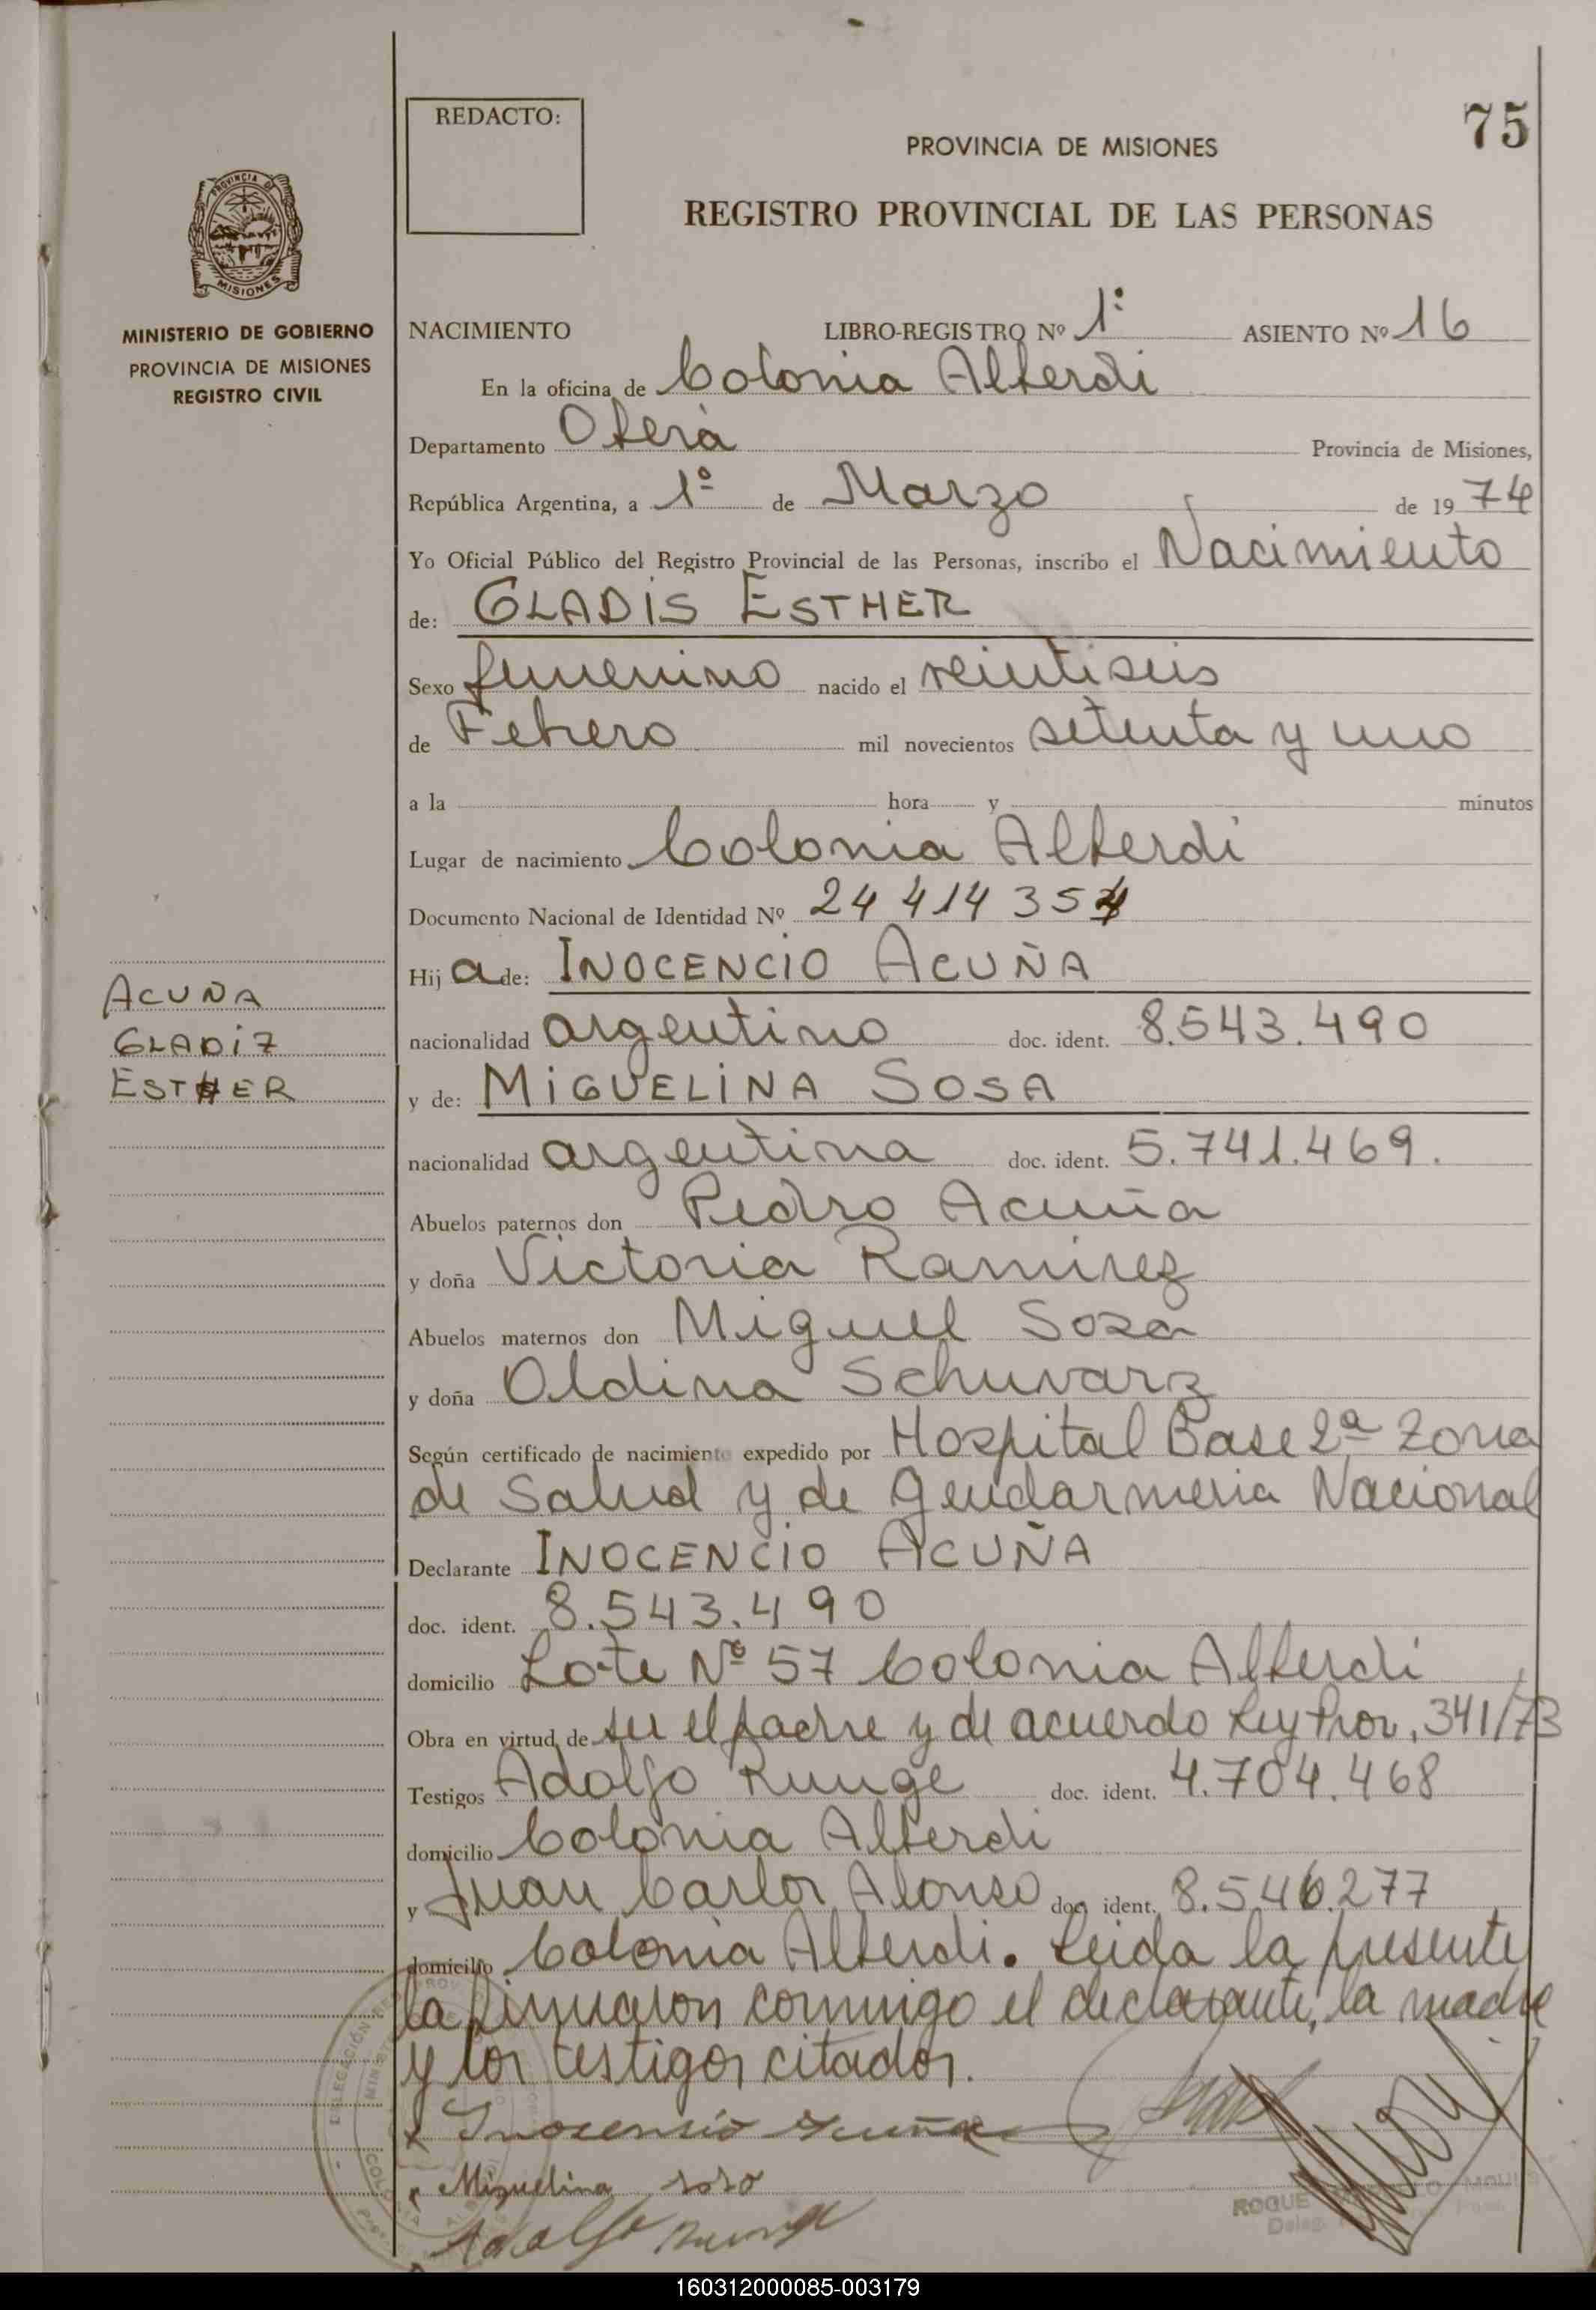 75
REDACTO:
PROVINCIA DE MISIONES
REGISTRO PROVINCIAL DE LAS PERSONAS
PROVINCIA DE
MISIONES
MINISTERIO DE GOBIERNO
PROVINCIA DE MISIONES
REGISTRO CIVIL
NACIMIENTO LIBRO-REGISTRO Nº 1º ASIENTO Nº 16
En la oficina de Colonia Alberdi
Departamento Oberà Provincia de Misiones,
República Argentina, a 1º de Marzo de 1974
Yo Oficial Público del Registro Provincial de las Personas, inscribo el Nacimiento
de: GLADIS ESTHER
Sexo femenino nacido el veintiseis
de Febrero mil novecientos setenta y uno
a la hora y minutos
Lugar de nacimiento Colonia Alberdi
Documento Nacional de Identidad Nº 24 414 354
Hija de: INOCENCIO ACUÑA
ACUÑA
GLADIZ
ESTHER
nacionalidad argentino doc. ident. 8.543.490
y de: MIGUELINA SOSA
nacionalidad argentina doc. ident. 5.741.469.
Abuelos paternos don Pedro Acuña
y doña Victoria Ramirez
Abuelos maternos don Miguel Sosa
y doña Oldina Schuvarz
Según certificado de nacimiento expedido por Hospital Base 2ª Zona
de Salud y de Gendarmeria Nacional
Declarante INOCENCIO ACUÑA
doc. ident. 8.543.490
domicilio Lote Nº 57 Colonia Alberdi
Obra en virtud de ser el padre y de acuerdo Ley Prov. 341/73
Testigos Adolfo Runge doc. ident. 4.704.468
domicilio Colonia Alberdi
y Juan Carlos Alonso doc. ident. 8.546.277
domicilio Colonia Alberdi. Leida la presente
la firmaron conmigo el declarante, la madre
y los testigos citados.
Inocensio Acuña
Miguelina soso
Adolfo Runge
ROQUE
160312000085-003179